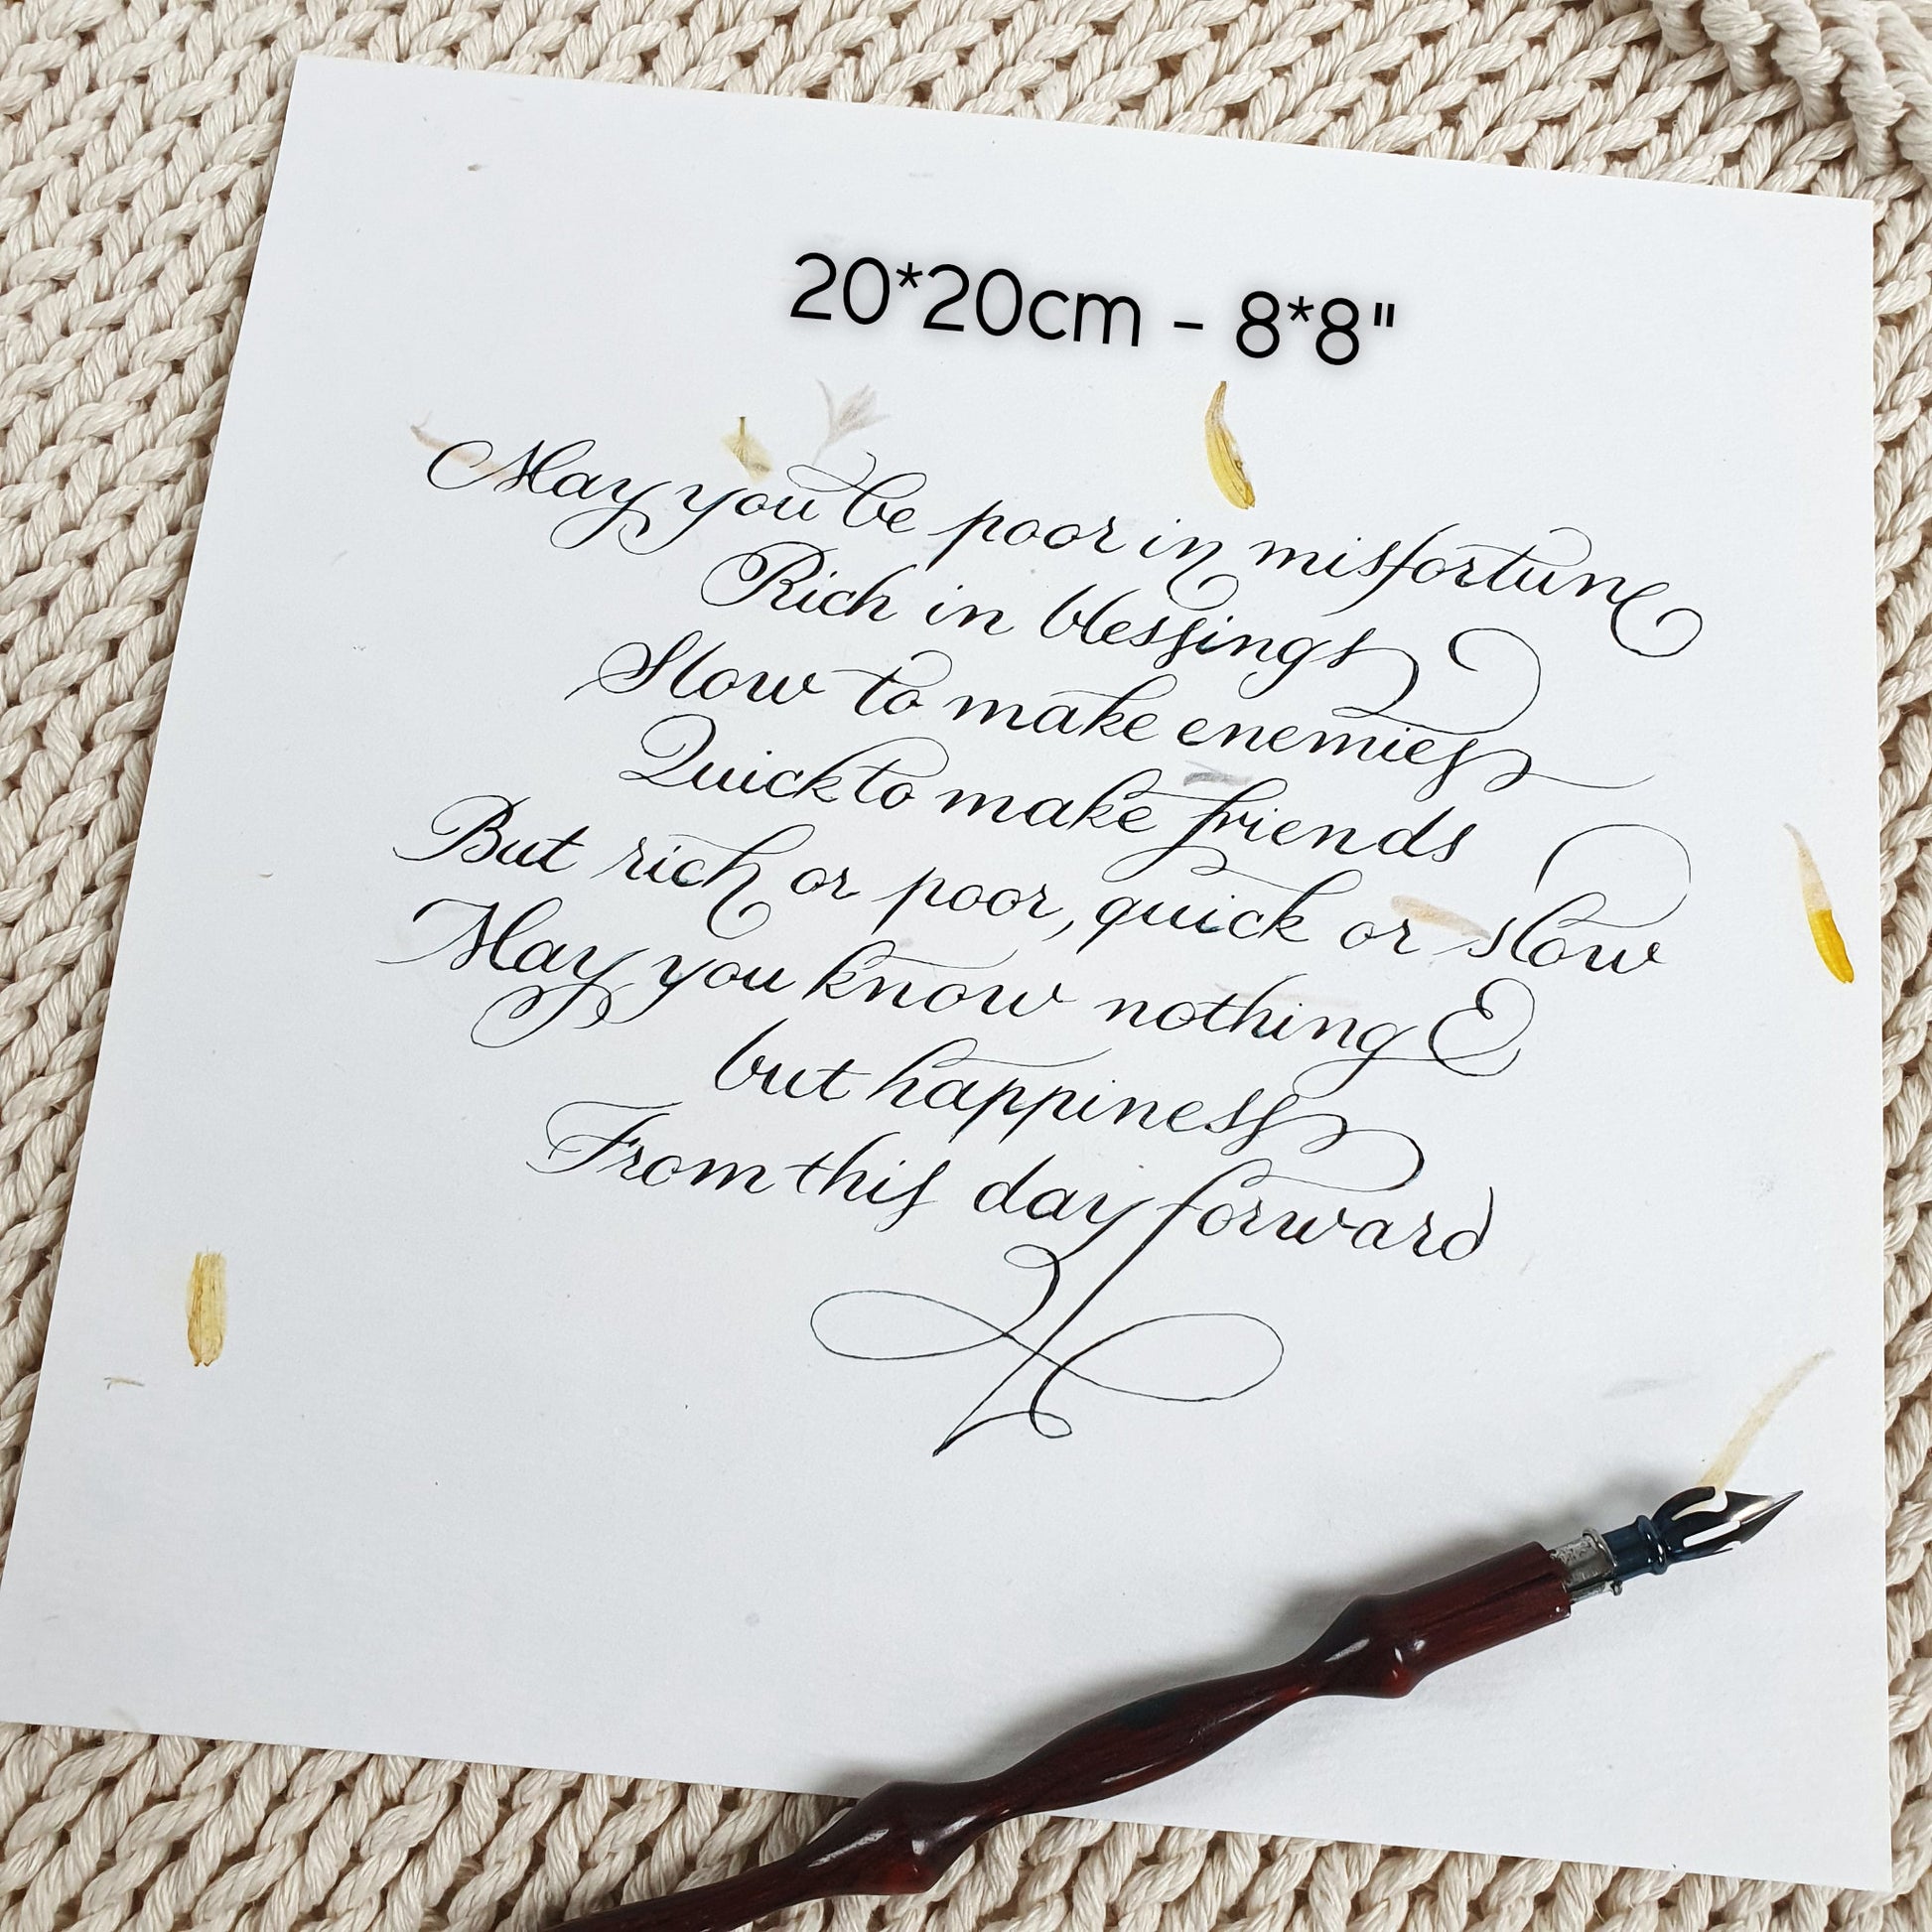 20*20cm - 8*8"
May you be poor in misfortune
Rich in blessings
Slow to make enemies
Quick to make friends
But rich or poor, quick or slow
May you know nothing
but happiness
From this day forward